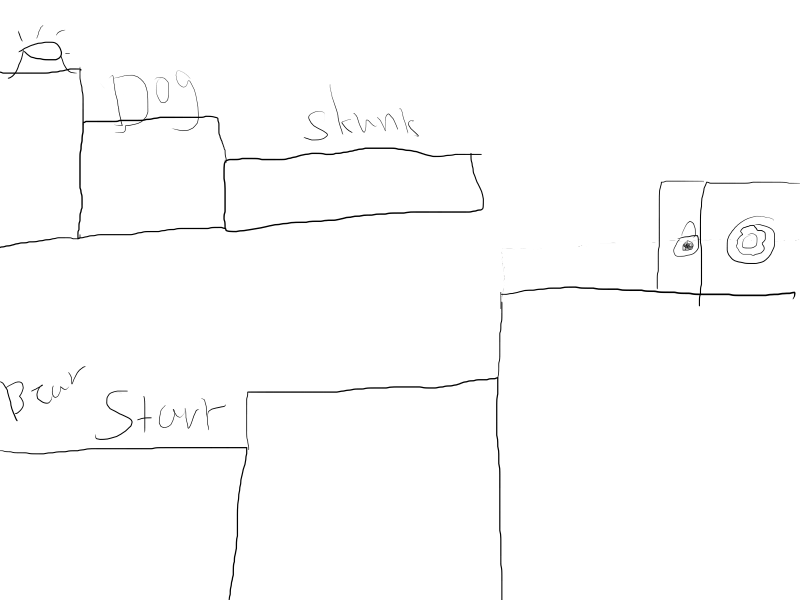 Dog
skunk
Bear
Start